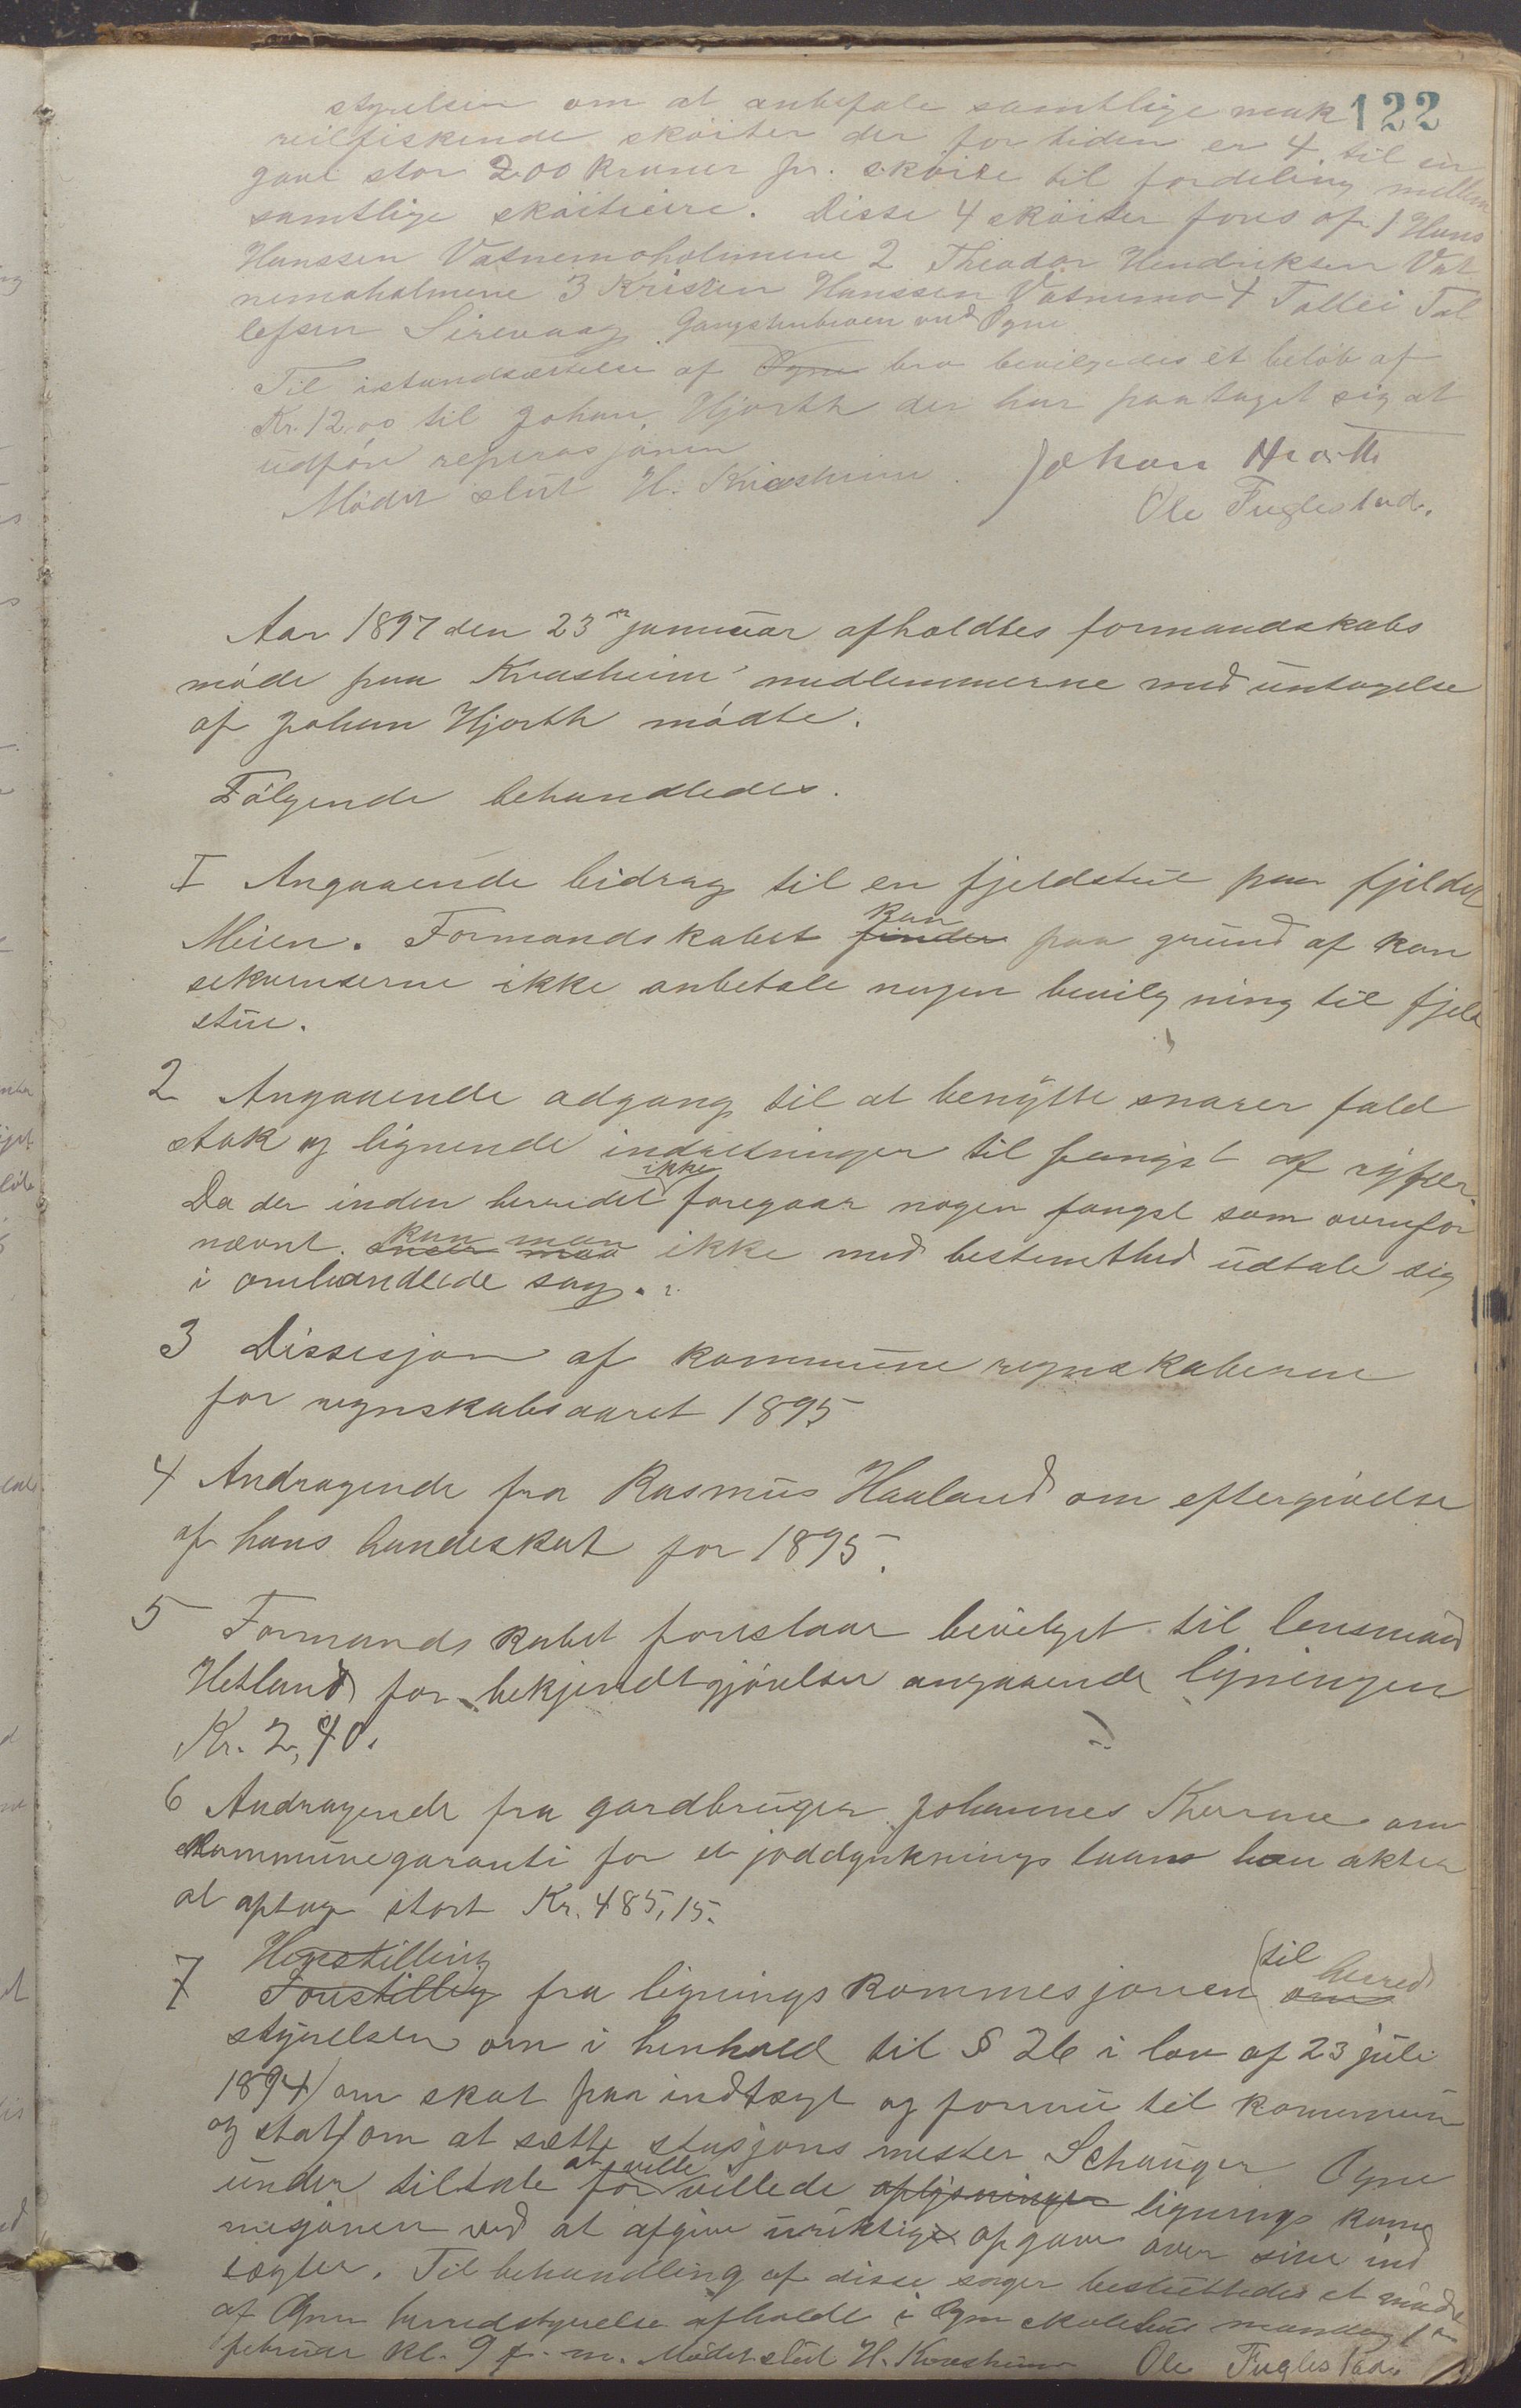 122
styrelsen om at anbefale samtlige mak
relfiskende skøiter der for tiden er 4, til en
gave stor 200 kroner pr. skøite til fordeling mellem
samtlige skøiteeire. Disse 4 skøiter føres af 1 Hans
Hanssen Vatnemoholmene 2 Theodor Hendriksen Vat
nemoholmene 3 Kristen Hanssen Vatnemo 4 Tallei Tal
lefsen Sirevaag. Gangshubroen ved Ogne
Til istandsættelse af Ogne bro bevilgedes et beløb af
Kr. 12,00 til Johan Hjorth der har paataget sig at
udføre reperasjonen
Mødet slut H. Kvasheim. Johan Hjorth
Ole Fuglestad.
Aar 1897 den 23de januar afholdtes formandskabs
møde paa Kvasheim medlemmerne med untagelse
af Johan Hjorth mødte.
Følgende behandledes.
I Angaaende bidrag til en fjeldstue paa fjeldet
Meien. Formandskabet finder kan paa grund af kon
sekvenserne ikke anbefale nogen bevilgning til fjeld
stue.
2 Angaaende adgang til at benytte snarer fald
stok og lignende indretninger til fangst af ryper.
Da der inden herredet ikke foregaar nogen fangst som ovenfor
nævnt. kan man ikke med bestemthed udtale sig
i omhandlede sag.
3 Dissesjon af kommuneregnskaberne
for regnskabsaaret 1895
4 Andragende fra Rasmus Haaland om eftergivelse
af hans hundeskat for 1895.
5 Formandskabet foreslaar bevilget til lensmand
Hetland for bekjendtgjørelser angaaende ligningen
Kr. 2,40.
6 Andragende fra gardbruger Johannes Kverme om
kommunegaranti for et jorddyrknings laan han akter
at optage stort Kr. 485,15.
7 Forestillig Henstilling fra ligningskommesjonen om til herred
styrelsen om i henhold til § 26 i lov af 23 juli
1894 (om skat paa indtægt og formue til kommune
og stat) om at sætte stasjonsmester Schanger Ogne
under tiltale for at ville villede oplysningen lignings kom
mesjonen ved at afgive uriktige opgave over sine ind
tægter. Til behandling af disse sager besluttedes et møde
af Ogne herredstyrelse afholdt i Ogne skolehus mandag 1ste
februar kl. 9 f.m. Mødet slut H. Kvasheim Ole Fuglestad.